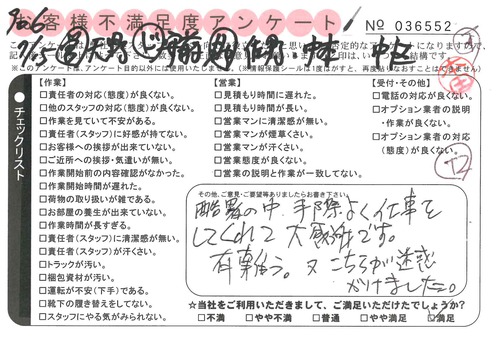 お客様不満足度アンケート
No 036552
※このアンケートは、アンケート目的以外には使用いたしません。(※情報保護シールは1度はがすと、再度貼りなおすことはできません)
チェックリスト
【作業】
□責任者の対応(態度)が良くない。
□他のスタッフの対応(態度)が良くない。
□作業を見ていて不安がある。
□責任者(スタッフ)に好感が持てない。
□お客様への挨拶が出来ていない。
□ご近所への挨拶・気遣いが無い。
□作業開始前の内容確認がなかった。
□作業開始時間が遅れた。
□荷物の取り扱いが雑である。
□お部屋の養生が出来ていない。
□作業時間が長すぎる。
□責任者(スタッフ)に清潔感が無い。
□責任者(スタッフ)が汗くさい。
□トラックが汚い。
□梱包資材が汚い。
□運転が不安(下手)である。
□靴下の履き替えをしてない。
□スタッフにやる気がみられない。
【営業】
□見積もり時間に遅れた。
□見積もり時間が長い。
□営業マンに清潔感が無い。
□営業マンが煙草くさい。
□営業マンが汗くさい。
□営業態度が良くない。
□営業の説明と作業が一致してない。
【受付・その他】
□電話の対応が良くない。
□オプション業者の説明
・作業が良くない。
□オプション業者の対応
(態度)が良くない。
その他、ご意見・ご要望等ありましたらお書き下さい。
酷暑の中、手際よく仕事を
してくれて大感謝です。
有難う。又こちらが迷惑
かけました。
☆当社をご利用いただきまして、ご満足いただけたでしょうか?
□不満 □やや不満 □普通 □やや満足 □満足